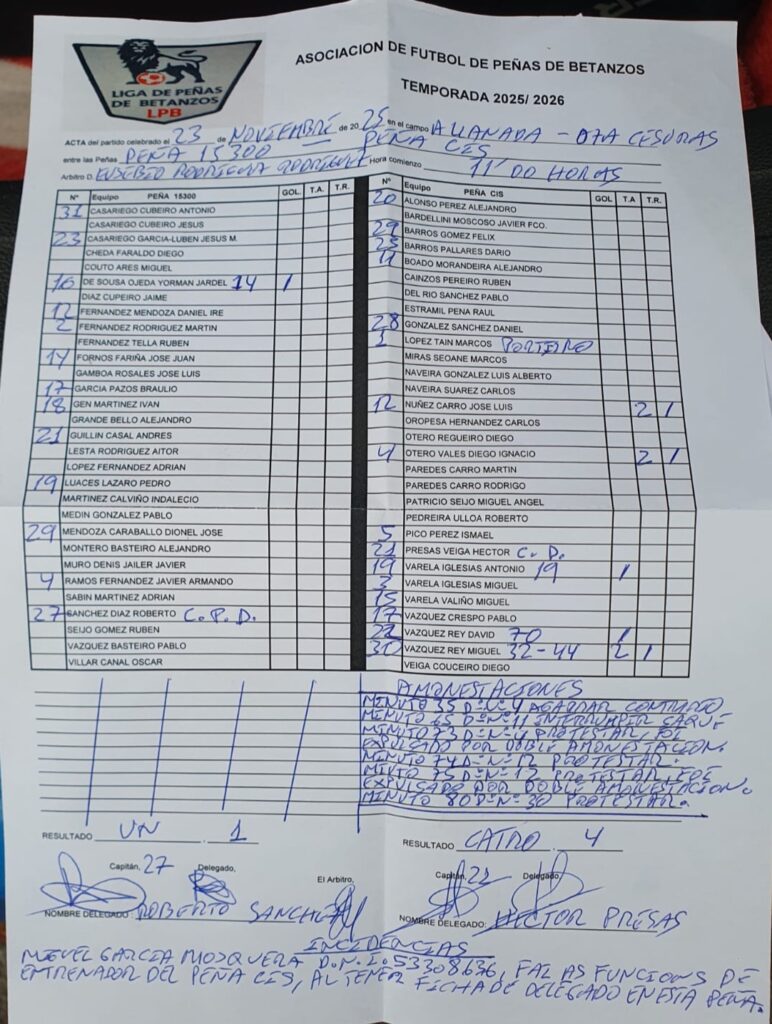 LIGA DE PEÑAS
DE BETANZOS
LPB
ASOCIACION DE FUTBOL DE PEÑAS DE BETANZOS
TEMPORADA 2025/ 2026
ACTA del partido celebrado el 23 de NOVIEMBRE de 2025 en el campo A LLANADA - OZA CESURAS
entre las Peñas PEÑA 15300 — PEÑA CIS
Arbitro D. EUSEBIO RODRIGUEZ RODRIGUEZ Hora comienzo 11'00 HORAS
Nº Equipo PEÑA 15300 GOL. T.A. T.R.
31 CASARIEGO CUBEIRO ANTONIO
CASARIEGO CUBEIRO JESUS
23 CASARIEGO GARCIA-LUBEN JESUS M.
CHEDA FARALDO DIEGO
COUTO ARES MIGUEL
16 DE SOUSA OJEDA YORMAN JARDEL 14 1
DIAZ CUPEIRO JAIME
12 FERNANDEZ MENDOZA DANIEL IRE
2 FERNANDEZ RODRIGUEZ MARTIN
FERNANDEZ TELLA RUBEN
14 FORNOS FARIÑA JOSE JUAN
GAMBOA ROSALES JOSE LUIS
17 GARCIA PAZOS BRAULIO
18 GEN MARTINEZ IVAN
GRANDE BELLO ALEJANDRO
21 GUILLIN CASAL ANDRES
LESTA RODRIGUEZ AITOR
LOPEZ FERNANDEZ ADRIAN
19 LUACES LAZARO PEDRO
MARTINEZ CALVIÑO INDALECIO
MEDIN GONZALEZ PABLO
29 MENDOZA CARABALLO DIONEL JOSE
MONTERO BASTEIRO ALEJANDRO
MURO DENIS JAILER JAVIER
4 RAMOS FERNANDEZ JAVIER ARMANDO
SABIN MARTINEZ ADRIAN
27 SANCHEZ DIAZ ROBERTO C.P.D.
SEIJO GOMEZ RUBEN
VAZQUEZ BASTEIRO PABLO
VILLAR CANAL OSCAR
Nº Equipo PEÑA CIS GOL T.A T.R.
20 ALONSO PEREZ ALEJANDRO
BARDELLINI MOSCOSO JAVIER FCO.
29 BARROS GOMEZ FELIX
23 BARROS PALLARES DARIO
11 BOADO MORANDEIRA ALEJANDRO
CAINZOS PEREIRO RUBEN
DEL RIO SANCHEZ PABLO
ESTRAMIL PENA RAUL
28 GONZALEZ SANCHEZ DANIEL
1 LOPEZ TAIN MARCOS PORTEIRO
MIRAS SEOANE MARCOS
NAVEIRA GONZALEZ LUIS ALBERTO
NAVEIRA SUAREZ CARLOS
12 NUÑEZ CARRO JOSE LUIS 2 1
OROPESA HERNANDEZ CARLOS
OTERO REGUEIRO DIEGO
4 OTERO VALES DIEGO IGNACIO 2 1
PAREDES CARRO MARTIN
PAREDES CARRO RODRIGO
PATRICIO SEIJO MIGUEL ANGEL
PEDREIRA ULLOA ROBERTO
5 PICO PEREZ ISMAEL
21 PRESAS VEIGA HECTOR C.D.
19 VARELA IGLESIAS ANTONIO 19 1
3 VARELA IGLESIAS MIGUEL
15 VARELA VALIÑO MIGUEL
17 VAZQUEZ CRESPO PABLO
22 VAZQUEZ REY DAVID 70 1
30 VAZQUEZ REY MIGUEL 32-44 2 1
VEIGA COUCEIRO DIEGO
AMONESTACIONES
MINUTO 35 D-Nº 4 AGARRAR CONTRARIO
MINUTO 65 D-Nº 11 INTERRUMPIR SAQUE
MINUTO 73 D-Nº 4 PROTESTAR, FOI
EXPULSADO POR DOBLE AMONESTACION.
MINUTO 74 D-Nº 12 PROTESTAR.
MINTO 75 D-Nº 12 PROTESTAR, FOI
EXPULSADO POR DOBLE AMONESTACION.
MINUTO 80 D-Nº 30 PROTESTAR.
RESULTADO UN . 1
RESULTADO CATRO . 4
Capitán, 27 Delegado, El Arbitro, Capitán, 22 Delegado,
NOMBRE DELEGADO ROBERTO SANCHEZ
NOMBRE DELEGADO: HECTOR PRESAS
INCIDENCIAS
MIGUEL GARCIA MOSQUERA D.N.I. 53308636, FAI AS FUNCIONS DE
ENTRENADOR DEL PEÑA CIS, AL TENER FICHA DE DELEGADO EN ESTA PEÑA.